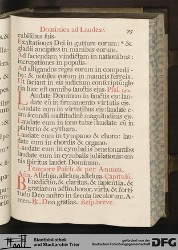 Dominica ad Laudes.
cubilibus suis.
Exaltationes Dei in gutture eorum: * &
gladii ancipites in manibus eorum.
Ad faciendam vindictam in nationibus: *
increpationes in populis.
Ad alligandos reges eorum in compedi-
bus: * & nobiles eorum in manicis ferreis.
Ut faciant in eis judicium conscriptum: *
gloria haec est omnibus sanctis ejus. Psal. 150.
Laudate Dominum in sanctis ejus: *
laudate eum in firmamento virtutis ejus.
Laudate eum in virtutibus ejus: * laudate
eum secundum multitudinem magnitudinis ejus.
Laudate eum in sono tubae: * laudate eum in
psalterio & cythara.
Laudate eum in tympano & choro: * laudate
eum in chordis & organo.
Laudate eum in cymbalis benesonantibus:
laudate eum in cymbalis jubilationis: * om-
nis spiritus laudet Dominum.
Tempore Pasch. & per Annum.
Alleluja, alleluja, alleluja. Capitulum.
Benedictio, & claritas, & sapientia, &
gratiarum actio, honor, virtus, & forti-
tudo Deo nostro in saecula saeculorum. A-
men. Deo gratias.
Staatsbibliothek
und Stadtarchiv Trier
gefördert von der
DEUTSCHEN FORSCHUNGSGEMEINSCHAFT
DFG